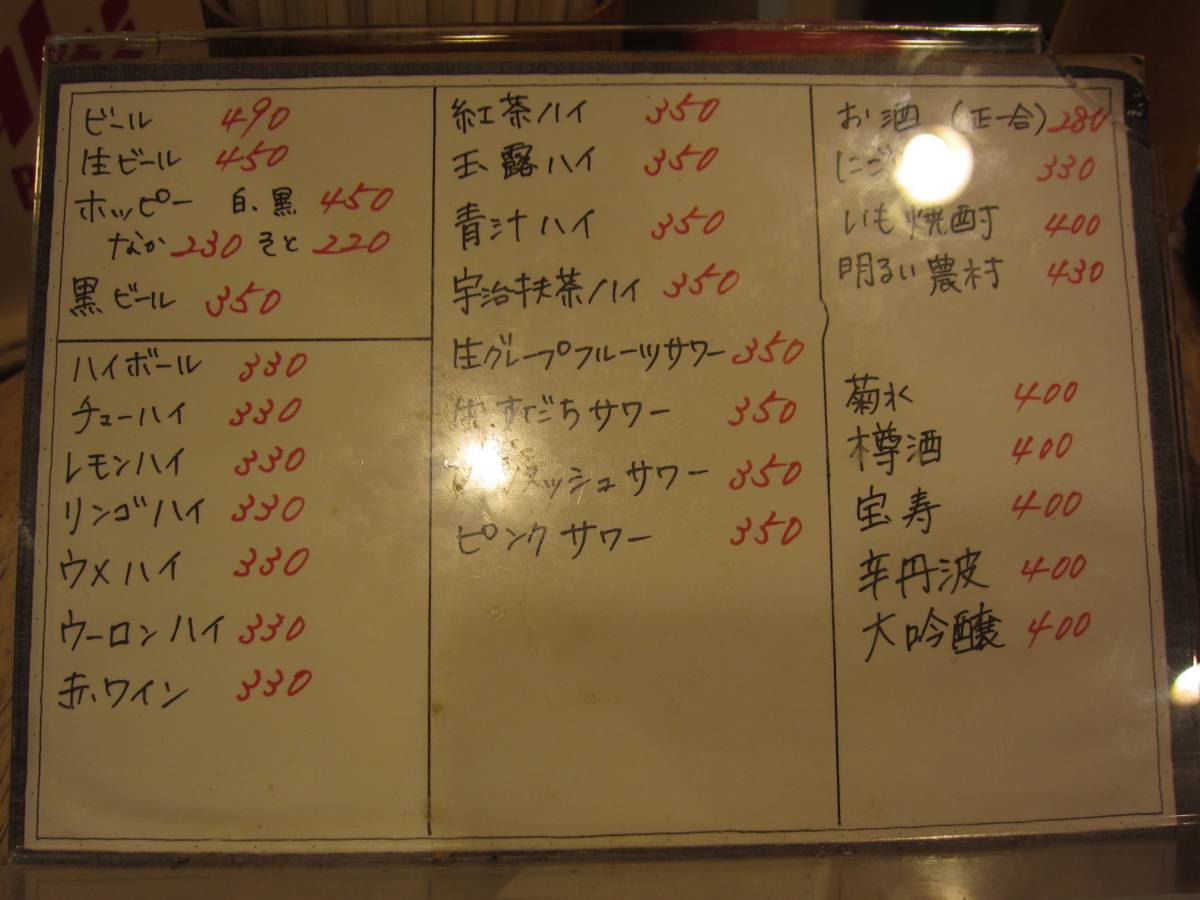 ビール 490
生ビール 450
ホッピー 白、黒 450
なか 230 そと 220
黒ビール 350
ハイボール 330
チューハイ 330
レモンハイ 330
リンゴハイ 330
ウメハイ 330
ウーロンハイ 330
赤ワイン 330
紅茶ハイ 350
玉露ハイ 350
青汁ハイ 350
宇治抹茶ハイ 350
生グレープフルーツサワー 350
生すだちサワー 350
ッシュサワー 350
ピンクサワー 350
お酒 (正一合) 280
にご 330
いも焼酎 400
明るい農村 430
菊水 400
樽酒 400
宝寿 400
辛丹波 400
大吟醸 400